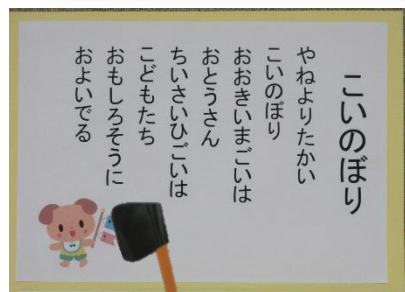 こいのぼり
やねよりたかい
こいのぼり
おおきいまごいは
おとうさん
ちいさいひごいは
こどもたち
おもしろそうに
およいでる